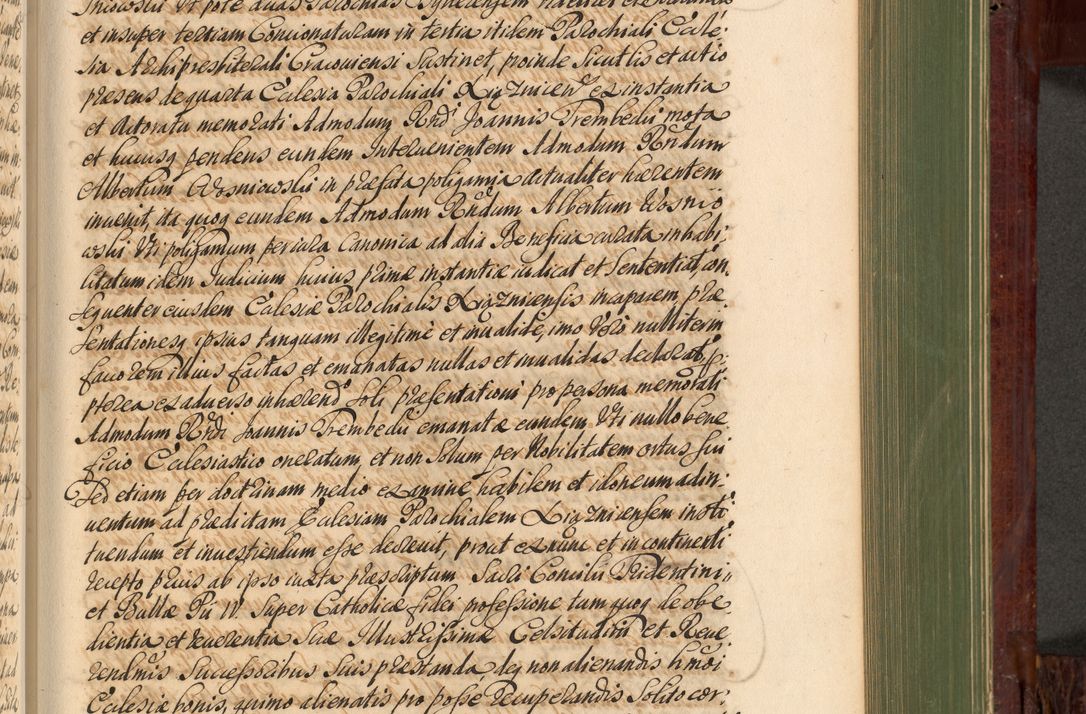 et insuper tertiam Concionaturam in tertia itidem Parochiali Eccle:
sia Archipresbiterali Cracoviensi Sustinet, proinde Sicut lis et actio
præsens de quarta Ecclesia Parochiali ex instantia
et Actoratu memorati Admodum Rndi Joannis Trembecki mota
et hucusq pendens eundem Intervenientem Admodum Rndum
Albertum Wosniowski in præfata poligamia actualiter hærentem
invenit, ita quoq eundem Admodum Rndum Albertum Wosnio
wski Uti poligamum, per iura Canonica ad alia Beneficia curata inhabi:
litatum idem Judicium huius primæ instantiæ iudicat et Sententiat, con,
sequenter eiusdem Ecclesiæ Parochialis incapacem, præ
sentationesq ipsius tanquam illegitimè et invalidè, imo Verò nulliter in
favorem illius factas et emanatas nullas et invalidas declarat,
pterea ex adverso inhærendo Soli præsentationi pro persona memorati
Admodum Rndi Joannis Trembecki emanatæ eundem Uti nullo bene
ficio Ecclesiastico oneratum, et non Solum per Nobilitatem ortus Sui
Sed etiam per doctrinam medio examine habilem et idoneum adin:
ventum ad prædictam Ecclesiam Parochialem insti
tuendum et investiendum esse decrevit, prout ex nunc et in continenti
recepto priùs ab ipso iuxta præscriptum Sacri Concilii Tridentini
et Bullæ Pii IV. Super Catholicæ fidei professione tum quoq de obe
dientia et reverentia Suæ Illustrissimæ Celsitudini et Reve
rendmis Successoribus Suis præstanda, deq non alienandis hmōi
Ecclesiæ bonis, quimo alienatis pro posse recuperandis Solito cor: